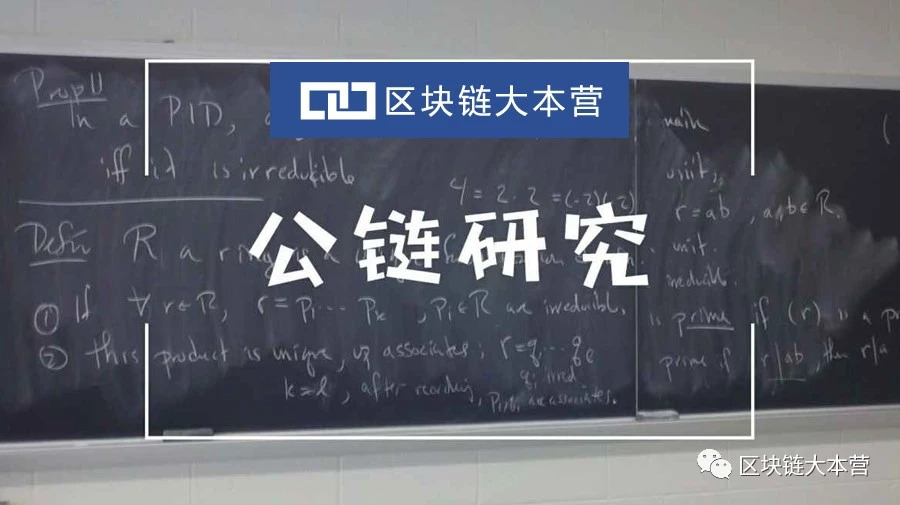 区块链大本营
公链研究
Prop 11
In a PID, a
iff it is irreducible
4 = 2 · 2 = (-2)(-2)
Defn R a ring is a
① If ∀ r∈R, r = p₁ ··· pₖ , pᵢ∈R are irreducible,
② this product is unique, up associates; r = q₁ ··· qₑ
qᵢ irred
k=l, after reordering, pᵢ, qᵢ are associates.
main
unit,
r = ab , a,b ∈ R.
unit.
irreducible.
is prime if (r) is a pr
prime if r|ab, then r|a
区块链大本营